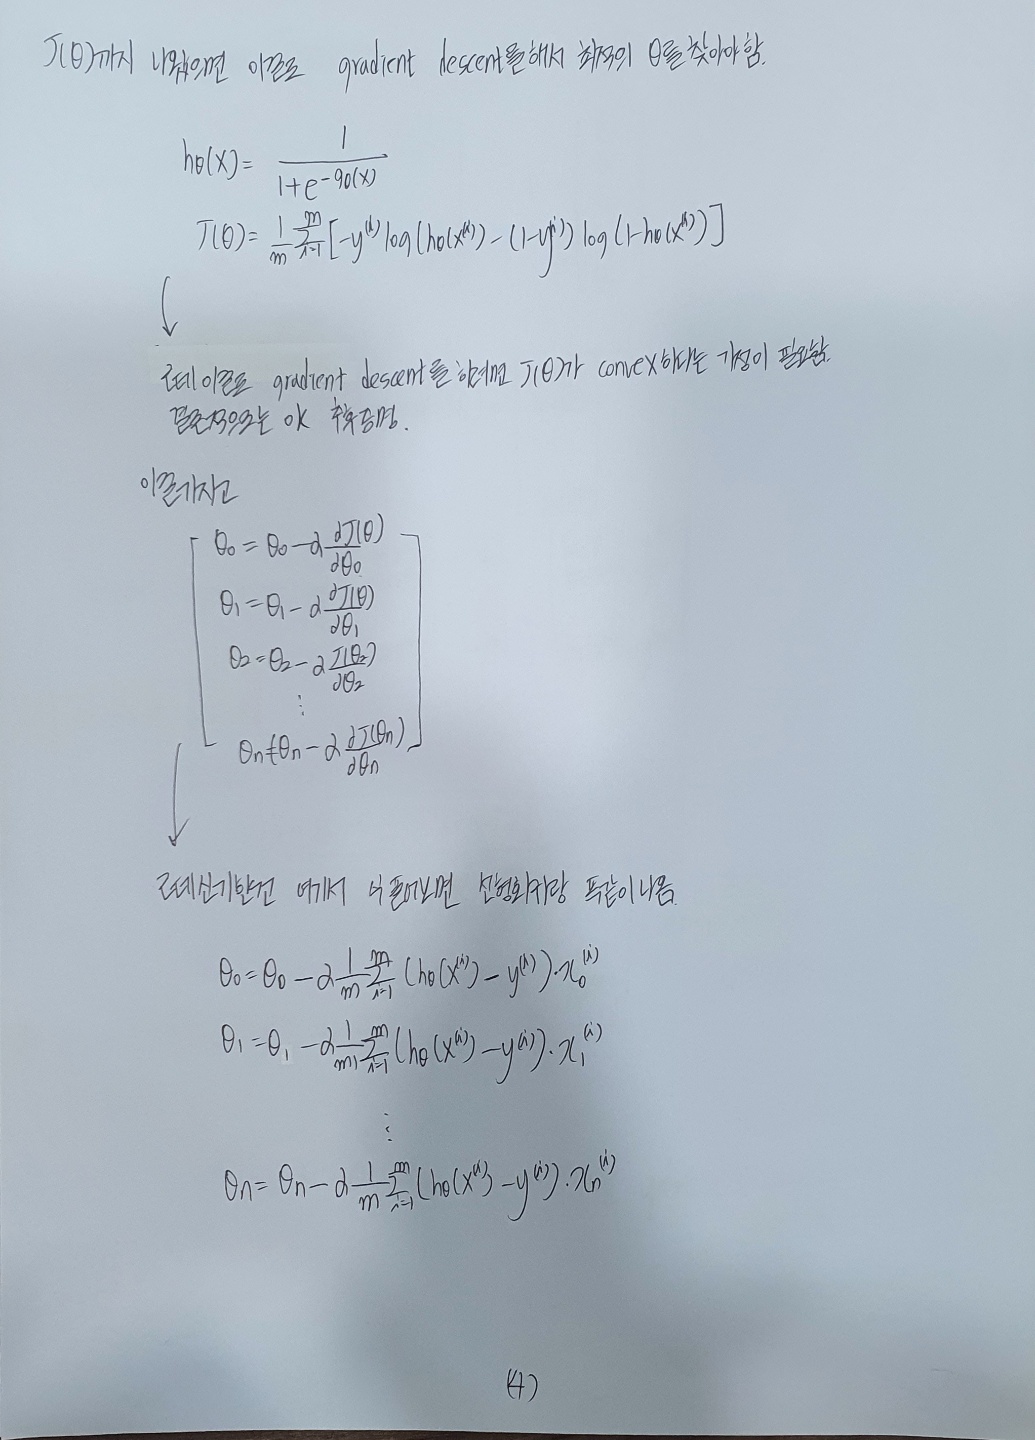 J(θ)까지 나왔으면 이걸로 gradient descent를해서 최적의 θ를 찾아야함.
hθ(X)= 1/(1+e^-gθ(x))
J(θ)= 1/m Σ_{i=1}^{m} [-y^(i) log(hθ(x^(i)) - (1-y^(i)) log (1-hθ(x^(i)))]
근데 이걸로 gradient descent를 하려면 J(θ)가 convex하다는 가정이 필요함.
결론적으로는 OK 추후증명.
이걸가지고
θ₀ = θ₀ - α ∂J(θ)/∂θ₀
θ₁ = θ₁ - α ∂J(θ)/∂θ₁
θ₂ = θ₂ - α J(θ₂)/∂θ₂
⋮
θn = θn - α ∂J(θn)/∂θn
근데신기한건 여기서 식 풀어보면 선형회귀랑 똑같이나옴.
θ₀ = θ₀ - α 1/m Σ_{i=1}^{m} (hθ(X^(i)) - y^(i))·x₀^(i)
θ₁ = θ₁ - α 1/m Σ_{i=1}^{m} (hθ(X^(i)) - y^(i))·x₁^(i)
⋮
θn = θn - α 1/m Σ_{i=1}^{m} (hθ(X^(i)) - y^(i))·xn^(i)
(4)